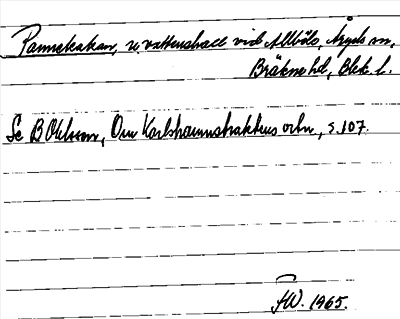 Pannekakan, u. vattenhace vid Allbåls, Åryds sn,
Bräkne hd, Blek. l.
Se B Ohlsson, Om Karlshamnstraktens ortn, s.107.
JW. 1965.